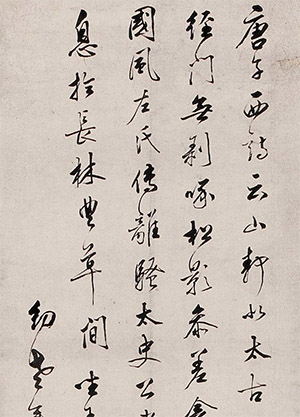 唐子西詩云山靜似太古
徑門無剥啄松影參差禽
國風左氏傳離騷太史公
息於長林豐草間坐
幼